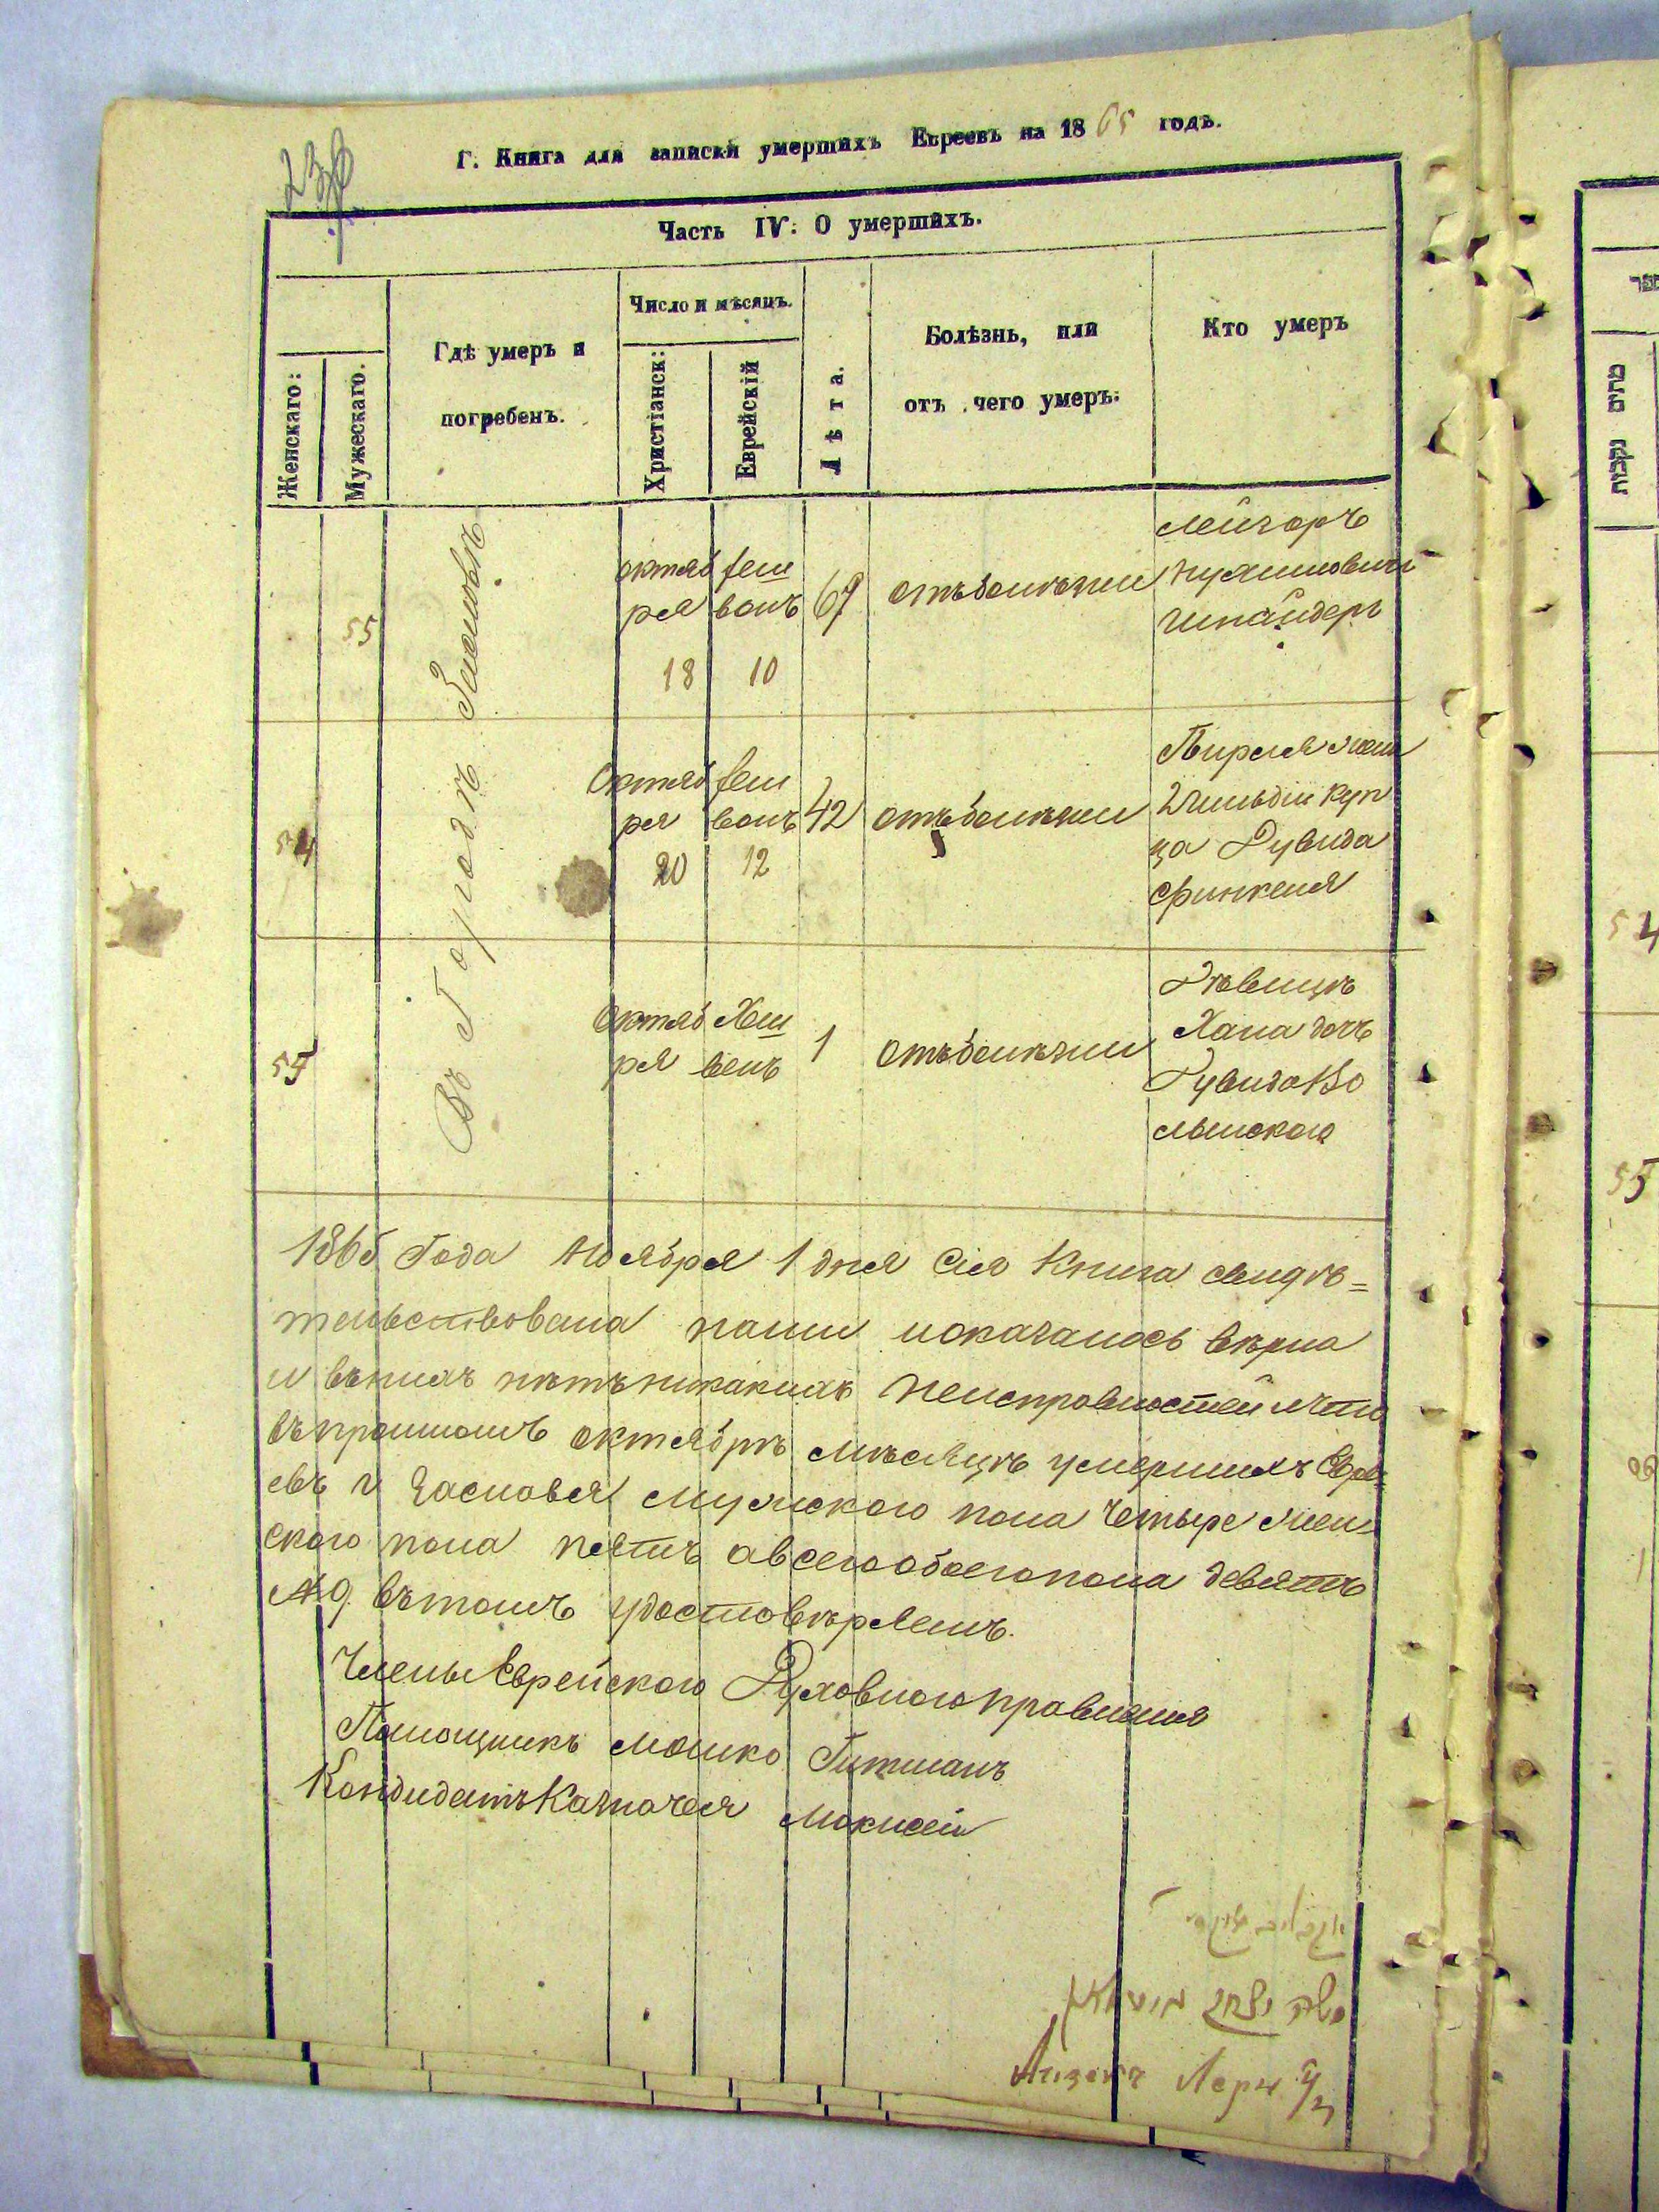 Г. Книга для записки умершихъ Евреевъ на 1865 годъ.
Часть IV: О умершихъ.
Женскаго:
Мужескаго.
Гдѣ умеръ и
погребенъ.
Число и мѣсяцъ.
Христіанск:
Еврейскій
Лѣта.
Болѣзнь, или
отъ чего умеръ:
Кто умеръ
Въ Городѣ Заславѣ
55
октяб
ря
18
Хеш
вонъ
10
67
отъ болѣзни
Лейзоръ
Шнайдеръ
54
Октяб
ря
20
Хеш
вонъ
12
42
отъ болѣзни
Пирля жена
2 гильдіи куп
ца Дувида
Финкеля
55
Октяб
ря
Хеш
венъ
1
отъ болѣзни
Дѣвица
Хана дочь
Дувида Во
льмского
1865 Года Ноября 1 дня Сія Книга свидѣ=
тельствована нами и оказалось вѣрна
и въ нихъ нѣтъ никакихъ неисправностей и что
въ прошломъ октябрѣ мѣсяцѣ умершихъ Евре
евъ г Заславля мужского пола четыре жен
ского пола пять а всего обоего пола девять
№ 9. въ томъ удостовѣряемъ.
Члены Еврейского Духовного правления
Помощникъ Мошко Гитманъ
Кандидатъ Казначея
משה יצחק
54
55
מתים
נקבות